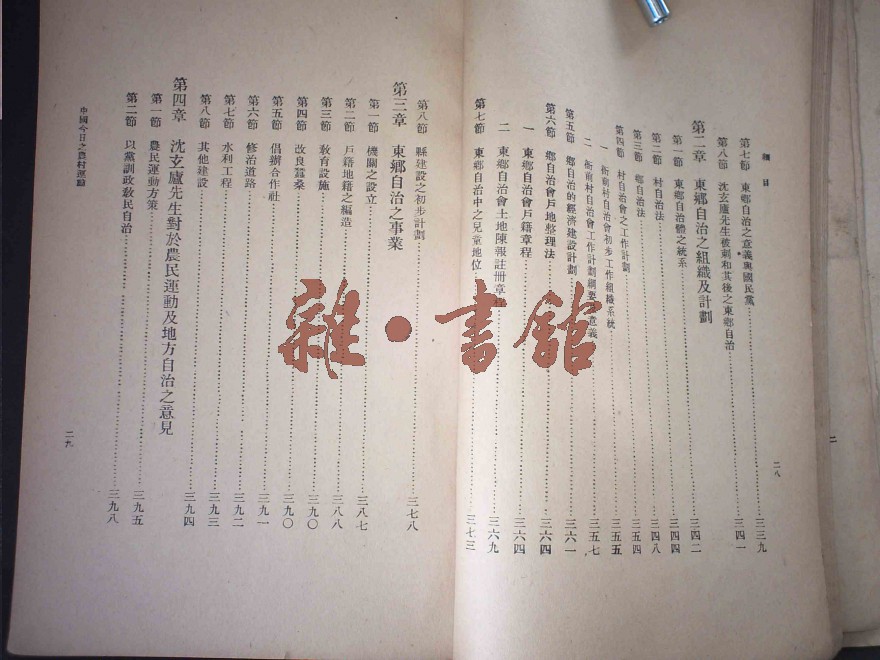 細目
第七節 東鄉自治之意義與國民黨 三三九
第八節 沈玄廬先生被刺和其後之東鄉自治 三四一
第二章 東鄉自治之組織及計劃 三四二
第一節 東鄉自治體之統系 三四四
第二節 村自治法 三四八
第三節 鄉自治法 三五四
第四節 村自治會之工作計劃 三五五
一 衙前村自治會初步工作組織系統
二 衙前村自治會工作計劃綱要 意義 三五七
第五節 鄉自治的經濟建設計劃 三六一
第六節 鄉自治會戶地整理法 三六四
一 東鄉自治會戶籍章程 三六四
二 東鄉自治會土地陳報註冊章 三六九
第七節 東鄉自治中之兒童地位 三七三
二八
第八節 縣建設之初步計劃 三七八
第三章 東鄉自治之事業
第一節 機關之設立 三八七
第二節 戶籍地籍之編造 三八八
第三節 教育設施 三九〇
第四節 改良蠶桑 三九〇
第五節 倡辦合作社 三九一
第六節 修治道路 三九二
第七節 水利工程 三九三
第八節 其他建設 三九四
第四章 沈玄廬先生對於農民運動及地方自治之意見
第一節 農民運動方策 三九五
第二節 以黨訓政教民自治 三九八
中國今日之農村運動
二九
雜·書館